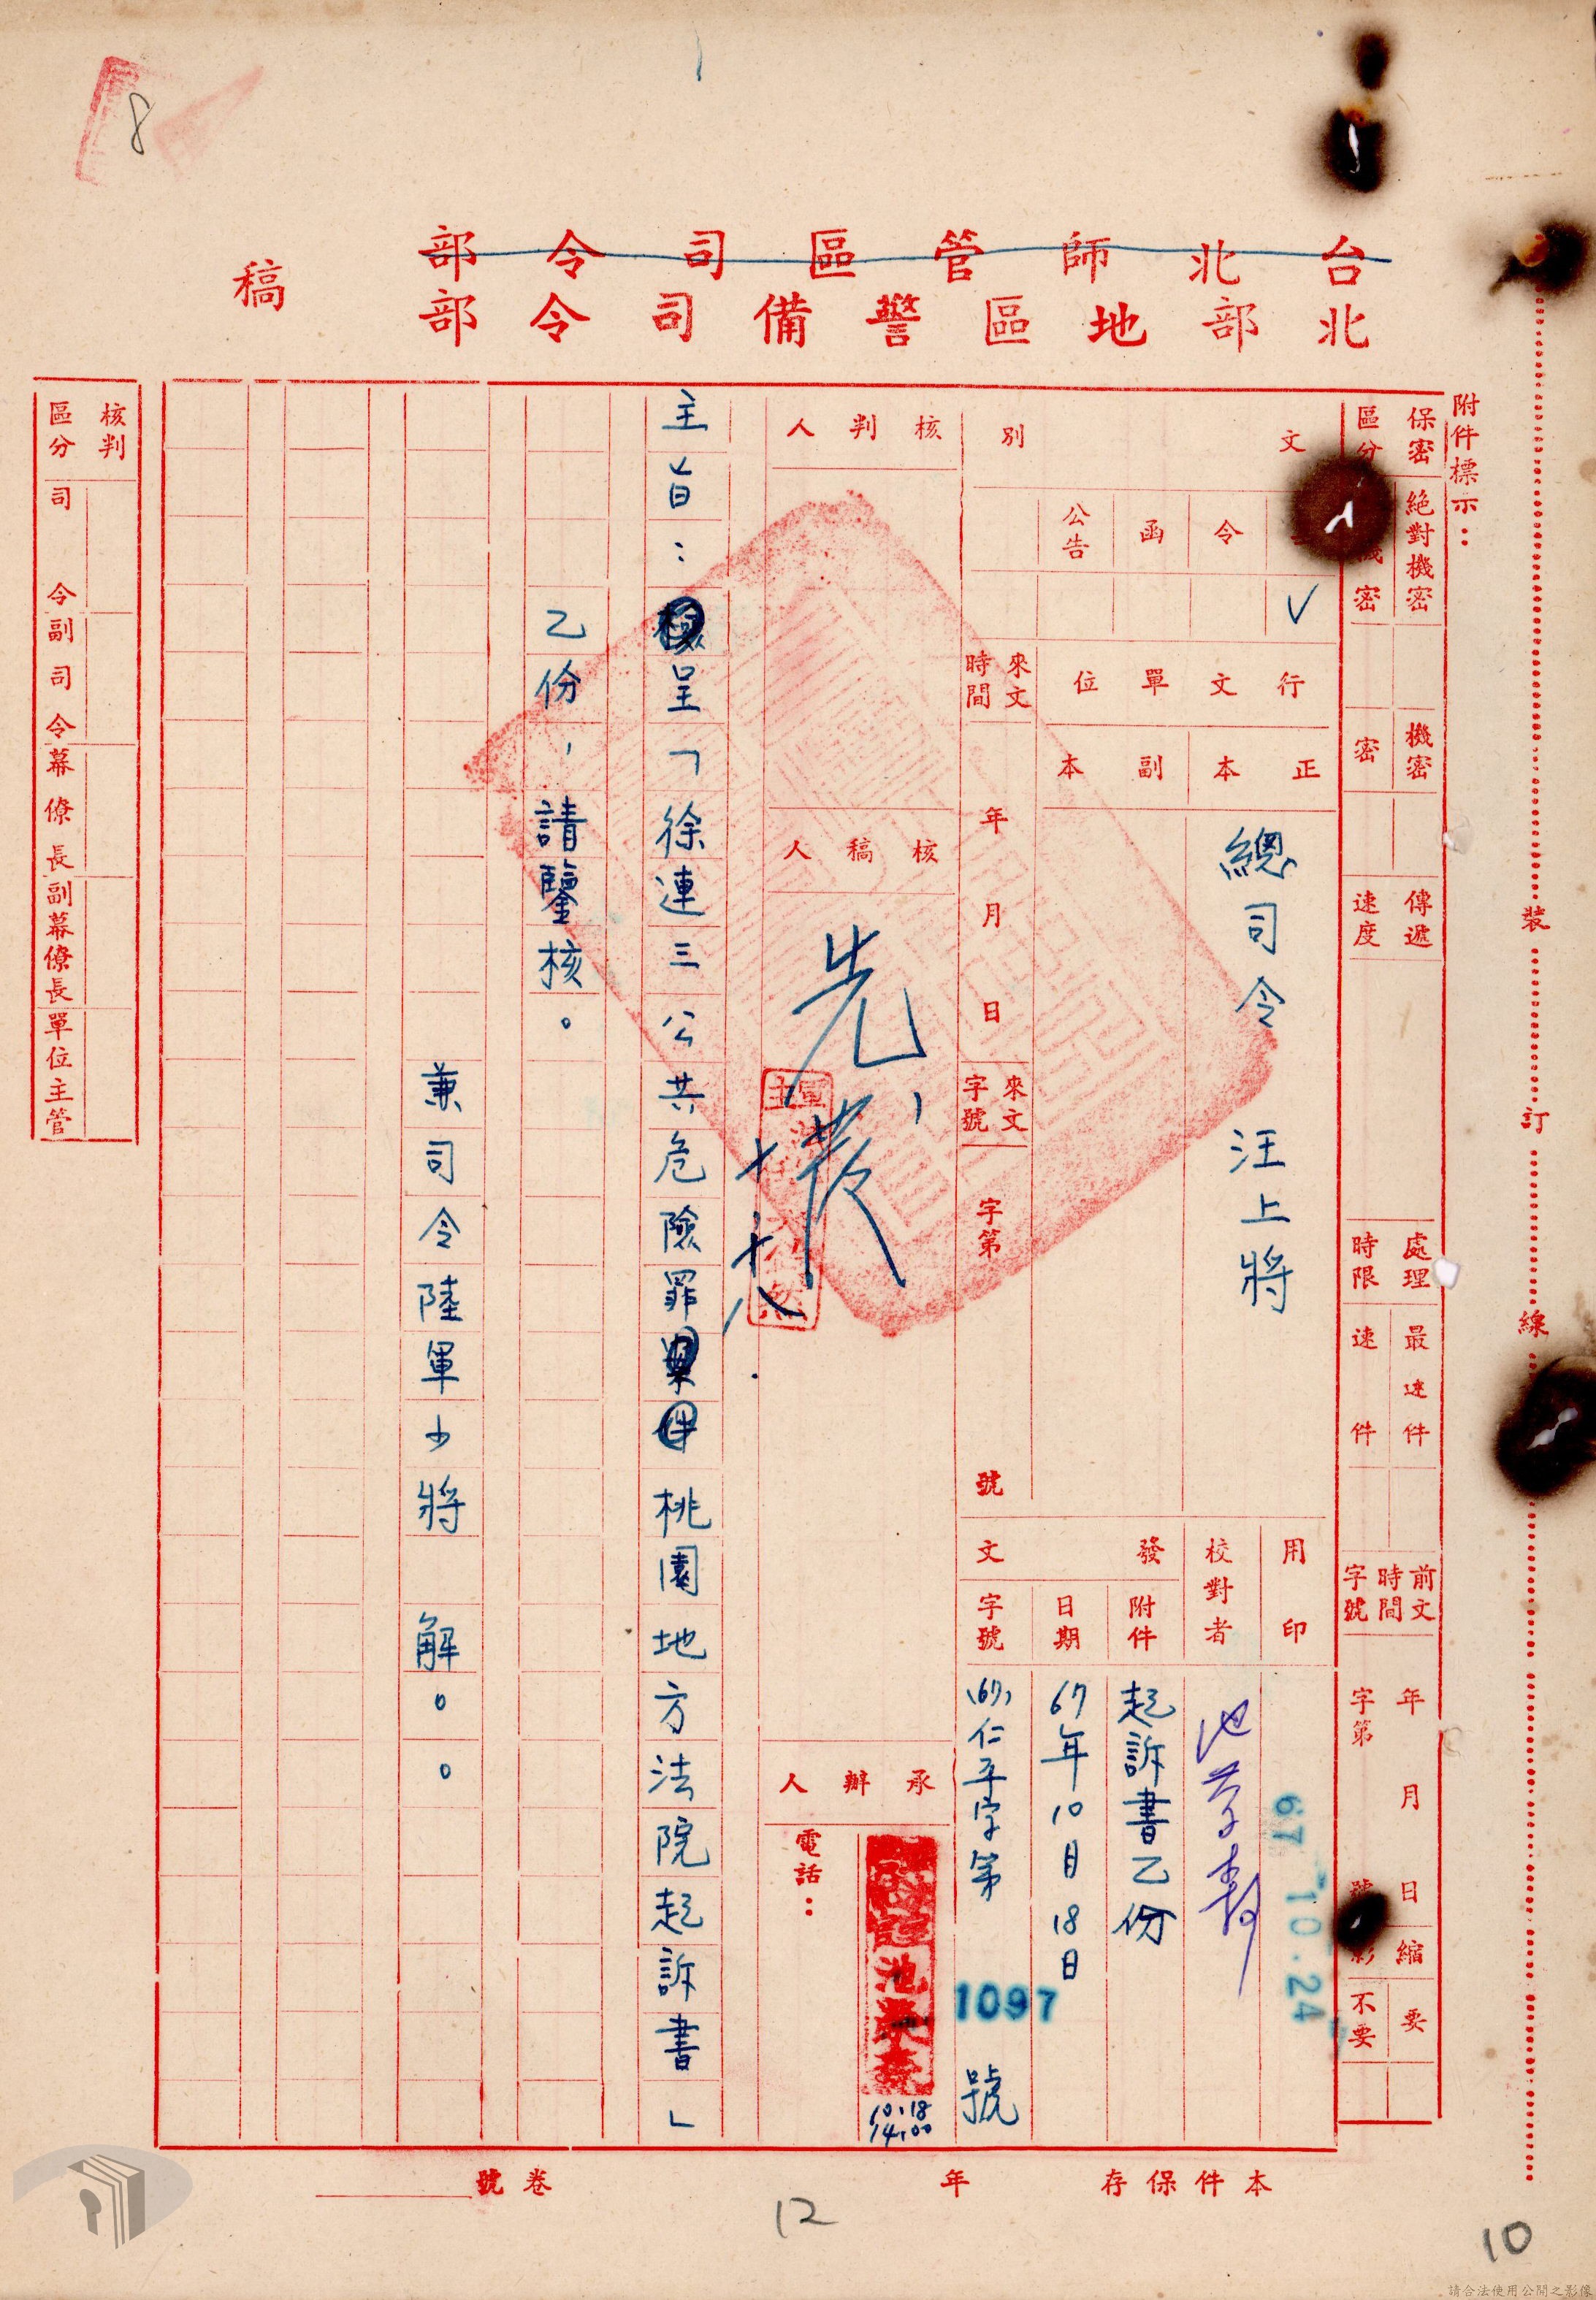 8
台北師管區司令部
北部地區警備司令部
稿
附件標示：
保密區分
絕對機密
密
機密
密
傳遞速度
處理時限
最速件
速件
前文時間字號
年月日
字第
縮
影
要
不要
裝訂線
文別
令
函
公告
✓
行文單位
正本
副本
總司令 汪上將
來文時間
年月日
來文字號
字第
號
用印
67.10.24
校對者
發文
附件
起訴書乙份
日期
67年10月18日
字號
(67)仁平字第
1097
號
核判人
核稿人
先發
十、十八
承辦人
電話：
10.18
14.00
主旨：呈「徐連三公共危險罪桃園地方法院起訴書」
乙份，請鑒核。
兼司令陸軍少將 解。。
核判區分
司令
副司令
幕僚長
副幕僚長
單位主管
本件保存 年
卷號
12
10
請合法使用公開之影像